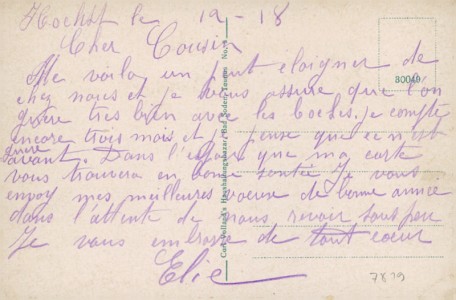 Hochst le 19-18
Cher Cousin
Me voilay un peut éloigner de
chez nous et je vous assure que l'on
très bien avec les boches. je compte
encore trois mois et je pense que ce
avant. Dans l'espoir que ma carte
vous trouvera en bonne santée Je vous
envoy mes meilleures voeux de bonne année
dans l'attente de nous revoir sous peu
Je vous embrasse de tout coeur
Elie
80040
7879